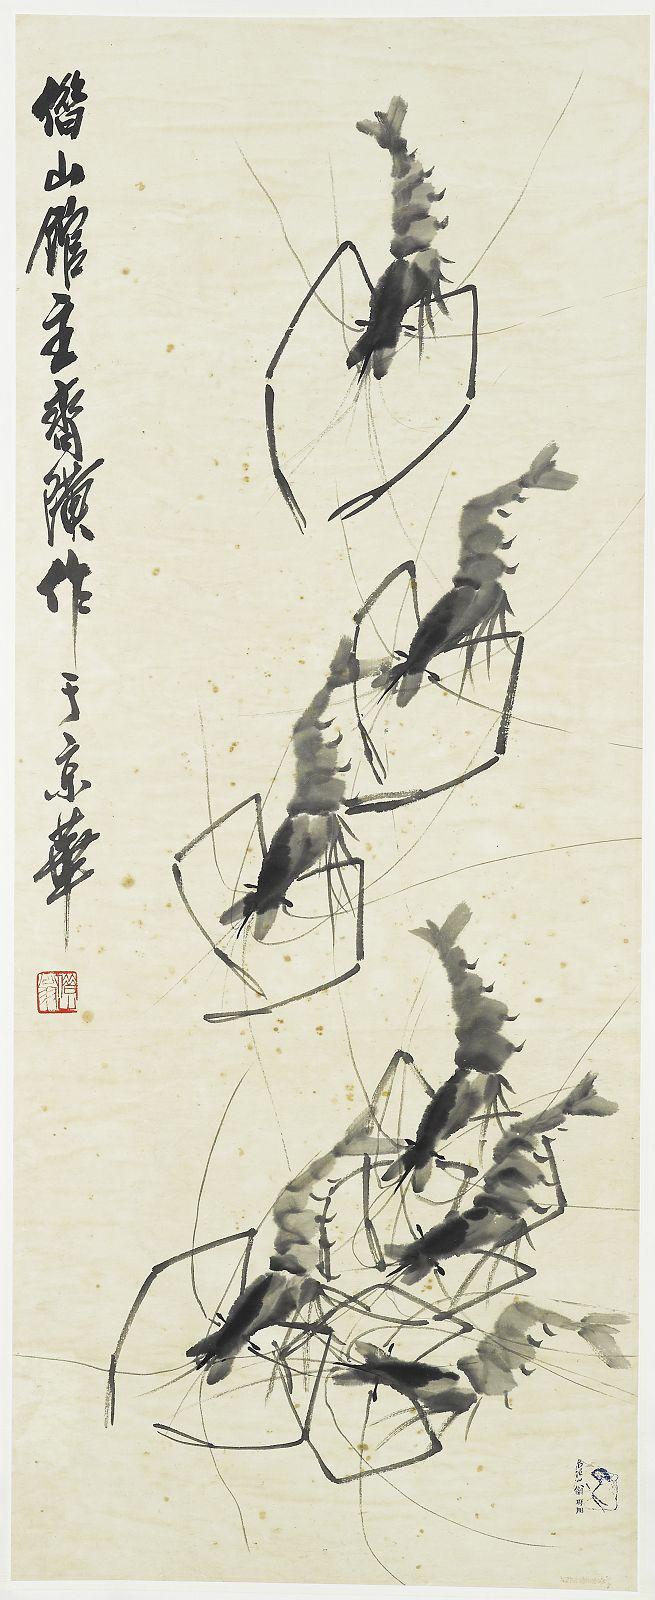 借山館主齊璜作于京華